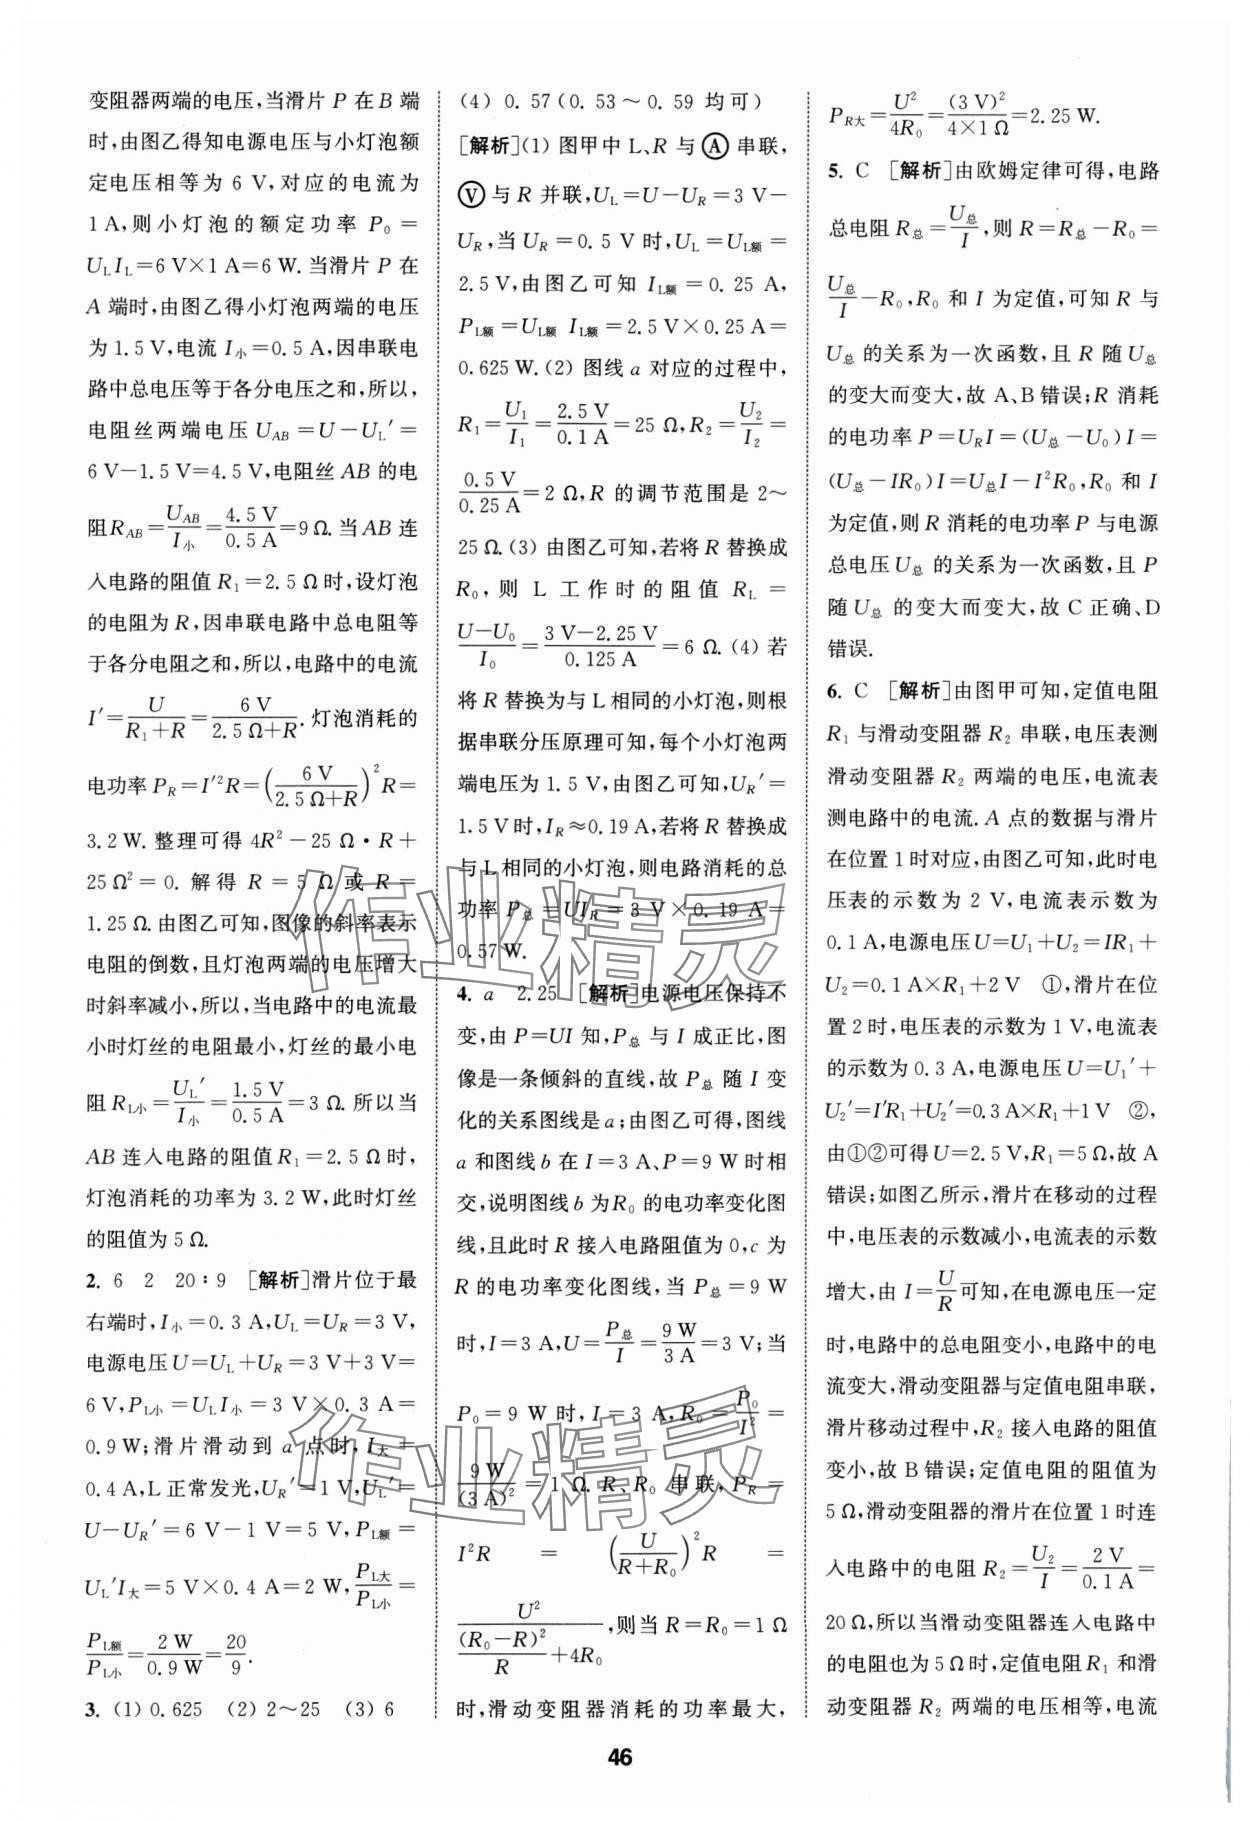 变阻器两端的电压,当滑片 P 在 B 端
时,由图乙得知电源电压与小灯泡额
定电压相等为 6 V,对应的电流为
1 A,则小灯泡的额定功率 P₀=
U_L I_L=6 V×1 A=6 W. 当滑片 P 在
A 端时,由图乙得小灯泡两端的电压
为 1.5 V,电流 I小=0.5 A,因串联电
路中总电压等于各分电压之和,所以,
电阻丝两端电压 U_AB=U-U_L′=
6 V-1.5 V=4.5 V,电阻丝 AB 的电
阻 R_AB=U_AB/I小=4.5 V/0.5 A=9 Ω. 当 AB 连
入电路的阻值 R₁=2.5 Ω 时,设灯泡
的电阻为 R,因串联电路中总电阻等
于各分电阻之和,所以,电路中的电流
I′=U/(R₁+R)=6 V/(2.5 Ω+R). 灯泡消耗的
电功率 P_R=I′²R=(6 V/(2.5 Ω+R))²R=
3.2 W. 整理可得 4R²-25 Ω·R+
25 Ω²=0. 解得 R=5 Ω 或 R=
1.25 Ω. 由图乙可知,图像的斜率表示
电阻的倒数,且灯泡两端的电压增大
时斜率减小,所以,当电路中的电流最
小时灯丝的电阻最小,灯丝的最小电
阻 R_L小=U_L′/I小=1.5 V/0.5 A=3 Ω. 所以当
AB 连入电路的阻值 R₁=2.5 Ω 时,
灯泡消耗的功率为 3.2 W,此时灯丝
的阻值为 5 Ω.
2. 6 2 20:9 [解析]滑片位于最
右端时,I小=0.3 A,U_L=U_R=3 V,
电源电压 U=U_L+U_R=3 V+3 V=
6 V,P_L小=U_L I小=3 V×0.3 A=
0.9 W;滑片滑动到 a 点时,I大=
0.4 A,L 正常发光,U_R′=1 V,U_L′=
U-U_R′=6 V-1 V=5 V,P_L额=
U_L′I大=5 V×0.4 A=2 W,P_L大/P_L小=
P_L额/P_L小=2 W/0.9 W=20/9.
3. (1) 0.625 (2) 2～25 (3) 6
(4) 0.57(0.53～0.59 均可)
[解析](1) 图甲中 L、R 与 Ⓐ 串联,
Ⓥ 与 R 并联,U_L=U-U_R=3 V-
U_R,当 U_R=0.5 V 时,U_L=U_L额=
2.5 V,由图乙可知 I_L额=0.25 A,
P_L额=U_L额 I_L额=2.5 V×0.25 A=
0.625 W. (2) 图线 a 对应的过程中,
R₁=U₁/I₁=2.5 V/0.1 A=25 Ω,R₂=U₂/I₂=
0.5 V/0.25 A=2 Ω,R 的调节范围是 2～
25 Ω. (3) 由图乙可知,若将 R 替换成
R₀,则 L 工作时的阻值 R_L=
(U-U₀)/I₀=(3 V-2.25 V)/0.125 A=6 Ω. (4) 若
将 R 替换为与 L 相同的小灯泡,则根
据串联分压原理可知,每个小灯泡两
端电压为 1.5 V,由图乙可知,U_R′=
1.5 V 时,I_R≈0.19 A,若将 R 替换成
与 L 相同的小灯泡,则电路消耗的总
功率 P总=UI_R=3 V×0.19 A=
0.57 W.
4. a 2.25 [解析]电源电压保持不
变,由 P=UI 知,P总 与 I 成正比,图
像是一条倾斜的直线,故 P总 随 I 变
化的关系图线是 a;由图乙可得,图线
a 和图线 b 在 I=3 A、P=9 W 时相
交,说明图线 b 为 R₀ 的电功率变化图
线,且此时 R 接入电路阻值为 0,c 为
R 的电功率变化图线,当 P总=9 W
时,I=3 A,U=P总/I=9 W/3 A=3 V;当
P₀=9 W 时,I=3 A,R₀=P₀/I²=
9 W/(3 A)²=1 Ω. R、R₀ 串联,P_R=
I²R=(U/(R+R₀))²R=
U²/((R₀-R)²/R+4R₀),则当 R=R₀=1 Ω
时,滑动变阻器消耗的功率最大,
P_R大=U²/4R₀=(3 V)²/(4×1 Ω)=2.25 W.
5. C [解析]由欧姆定律可得,电路
总电阻 R总=U总/I,则 R=R总-R₀=
U总/I-R₀,R₀ 和 I 为定值,可知 R 与
U总 的关系为一次函数,且 R 随 U总
的变大而变大,故 A、B 错误;R 消耗
的电功率 P=U_R I=(U总-U₀)I=
(U总-IR₀)I=U总I-I²R₀,R₀ 和 I
为定值,则 R 消耗的电功率 P 与电源
总电压 U总 的关系为一次函数,且 P
随 U总 的变大而变大,故 C 正确、D
错误.
6. C [解析]由图甲可知,定值电阻
R₁ 与滑动变阻器 R₂ 串联,电压表测
滑动变阻器 R₂ 两端的电压,电流表
测电路中的电流. A 点的数据与滑片
在位置 1 时对应,由图乙可知,此时电
压表的示数为 2 V,电流表示数为
0.1 A,电源电压 U=U₁+U₂=IR₁+
U₂=0.1 A×R₁+2 V ①,滑片在位
置 2 时,电压表的示数为 1 V,电流表
的示数为 0.3 A,电源电压 U=U₁′+
U₂′=I′R₁+U₂′=0.3 A×R₁+1 V ②,
由①②可得 U=2.5 V,R₁=5 Ω,故 A
错误;如图乙所示,滑片在移动的过程
中,电压表的示数减小,电流表的示数
增大,由 I=U/R 可知,在电源电压一定
时,电路中的总电阻变小,电路中的电
流变大,滑动变阻器与定值电阻串联,
滑片移动过程中,R₂ 接入电路的阻值
变小,故 B 错误;定值电阻的阻值为
5 Ω,滑动变阻器的滑片在位置 1 时连
入电路中的电阻 R₂=U₂/I=2 V/0.1 A=
20 Ω,所以当滑动变阻器连入电路中
的电阻也为 5 Ω 时,定值电阻 R₁ 和滑
动变阻器 R₂ 两端的电压相等,电流
46
作业精灵
作业精灵